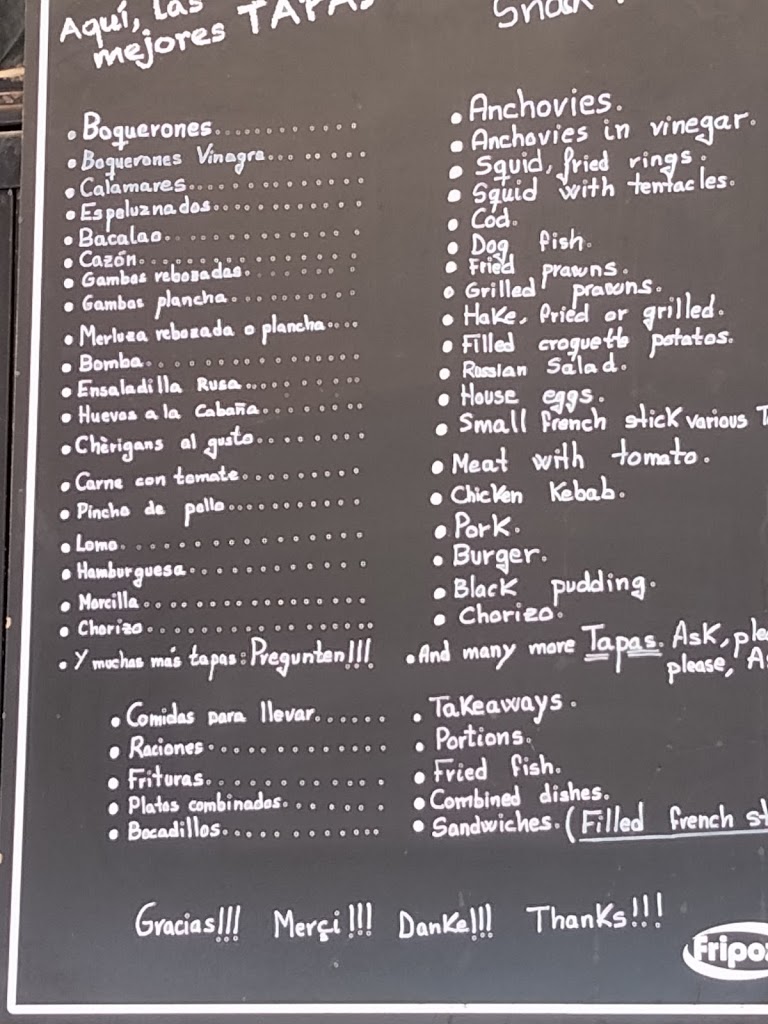 Aquí, las
mejores TAPAS
Snack
• Boquerones
• Boquerones Vinagre
• Calamares
• Espeluznados
• Bacalao
• Cazón
• Gambas rebozadas
• Gambas plancha
• Merluza rebozada o plancha
• Bomba
• Ensaladilla Rusa
• Huevos a la Cabaña
• Chèrigans al gusto
• Carne con tomate
• Pincho de pollo
• Lomo
• Hamburguesa
• Morcilla
• Chorizo
• Y muchas más tapas: Pregunten!!!
• Anchovies.
• Anchovies in vinegar.
• Squid, fried rings.
• Squid with tentacles.
• Cod.
• Dog fish.
• Fried prawns.
• Grilled prawns.
• Hake, fried or grilled.
• Filled croquette potatos.
• Russian Salad.
• House eggs.
• Small french stick various T
• Meat with tomato.
• Chicken Kebab.
• Pork.
• Burger.
• Black pudding.
• Chorizo.
• And many more Tapas. Ask, ple
please, A
• Comidas para llevar
• Raciones
• Frituras
• Platos combinados
• Bocadillos
• Takeaways.
• Portions.
• Fried fish.
• Combined dishes.
• Sandwiches. (Filled french st
Gracias!!! Merçi!!! Danke!!! Thanks!!!
Fripoz